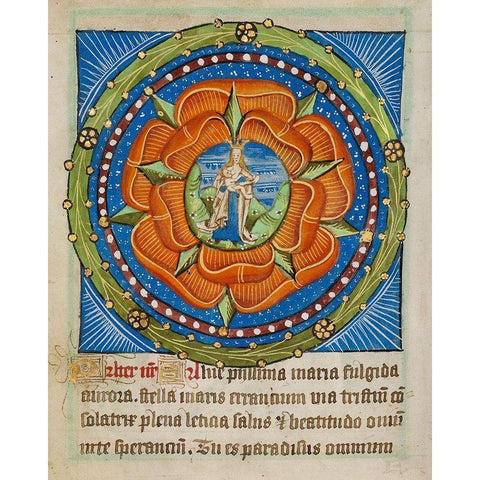 Aue piissima maria fulgida
aurora. stella maris errancium via tristiū cō
solatrix plena leticia salus ⁊ beatitudo om̄iū
in te sperancium. Tu es paradisus omnium